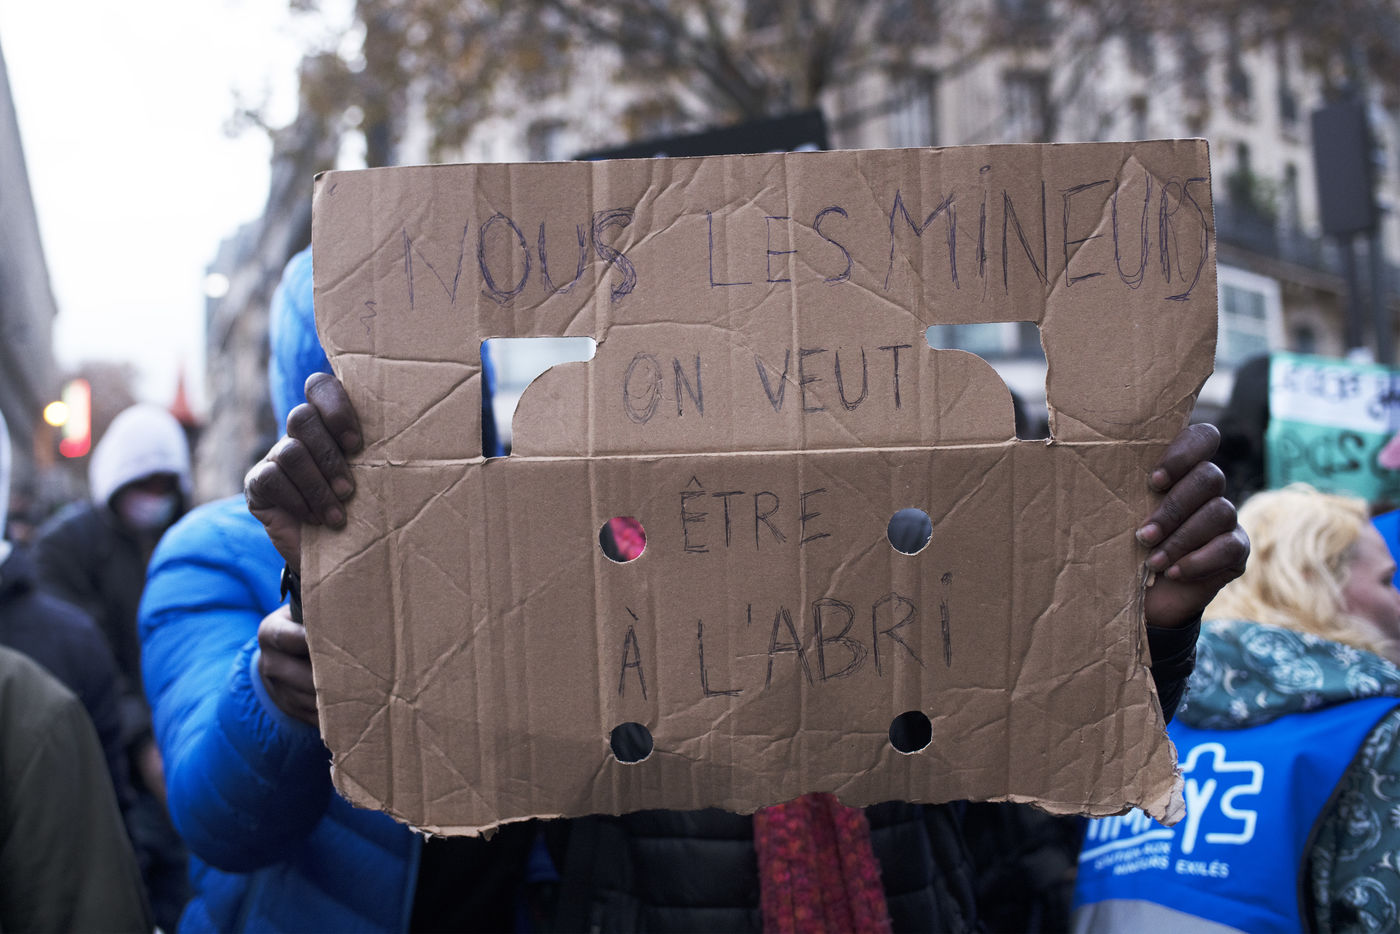 NOUS LES MiNEURS
ON VEUT
ÊTRE
À L'ABRi
MINEURS EXILÉS